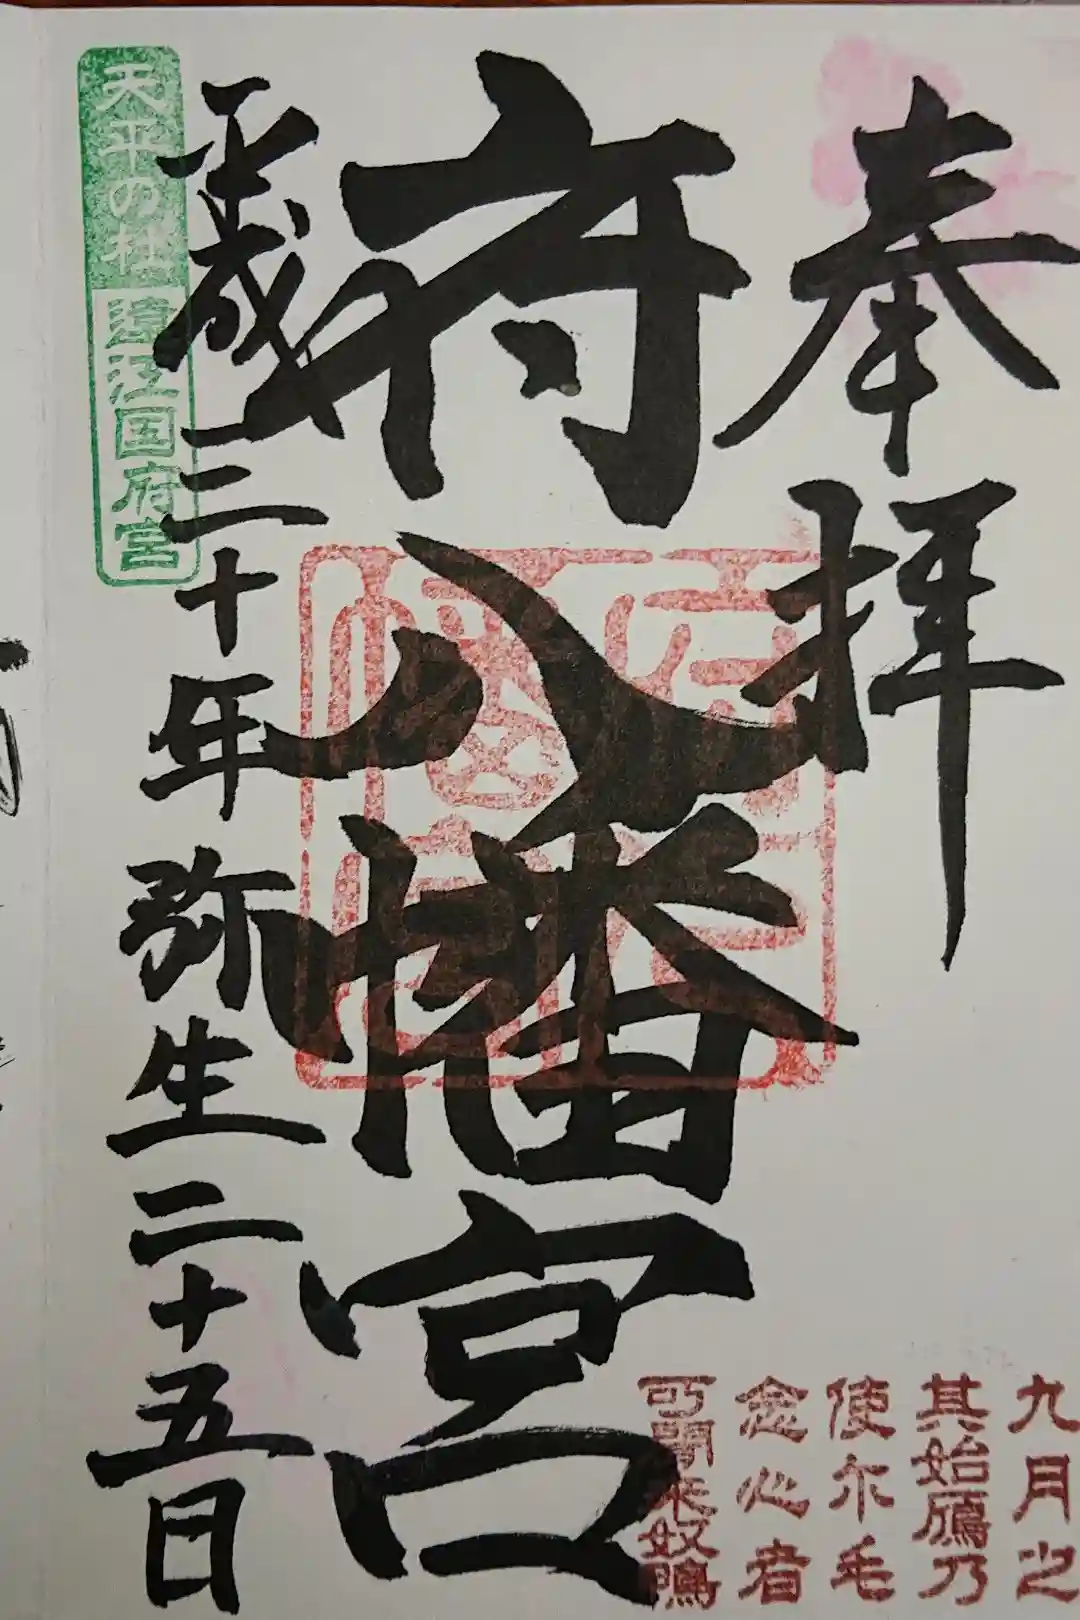 奉拝
九月之
其始鴈乃
使尓毛
念心者
可聞来奴鴨
府八幡宮
平成三十年弥生二十五日
天平の杜 遠江国府宮